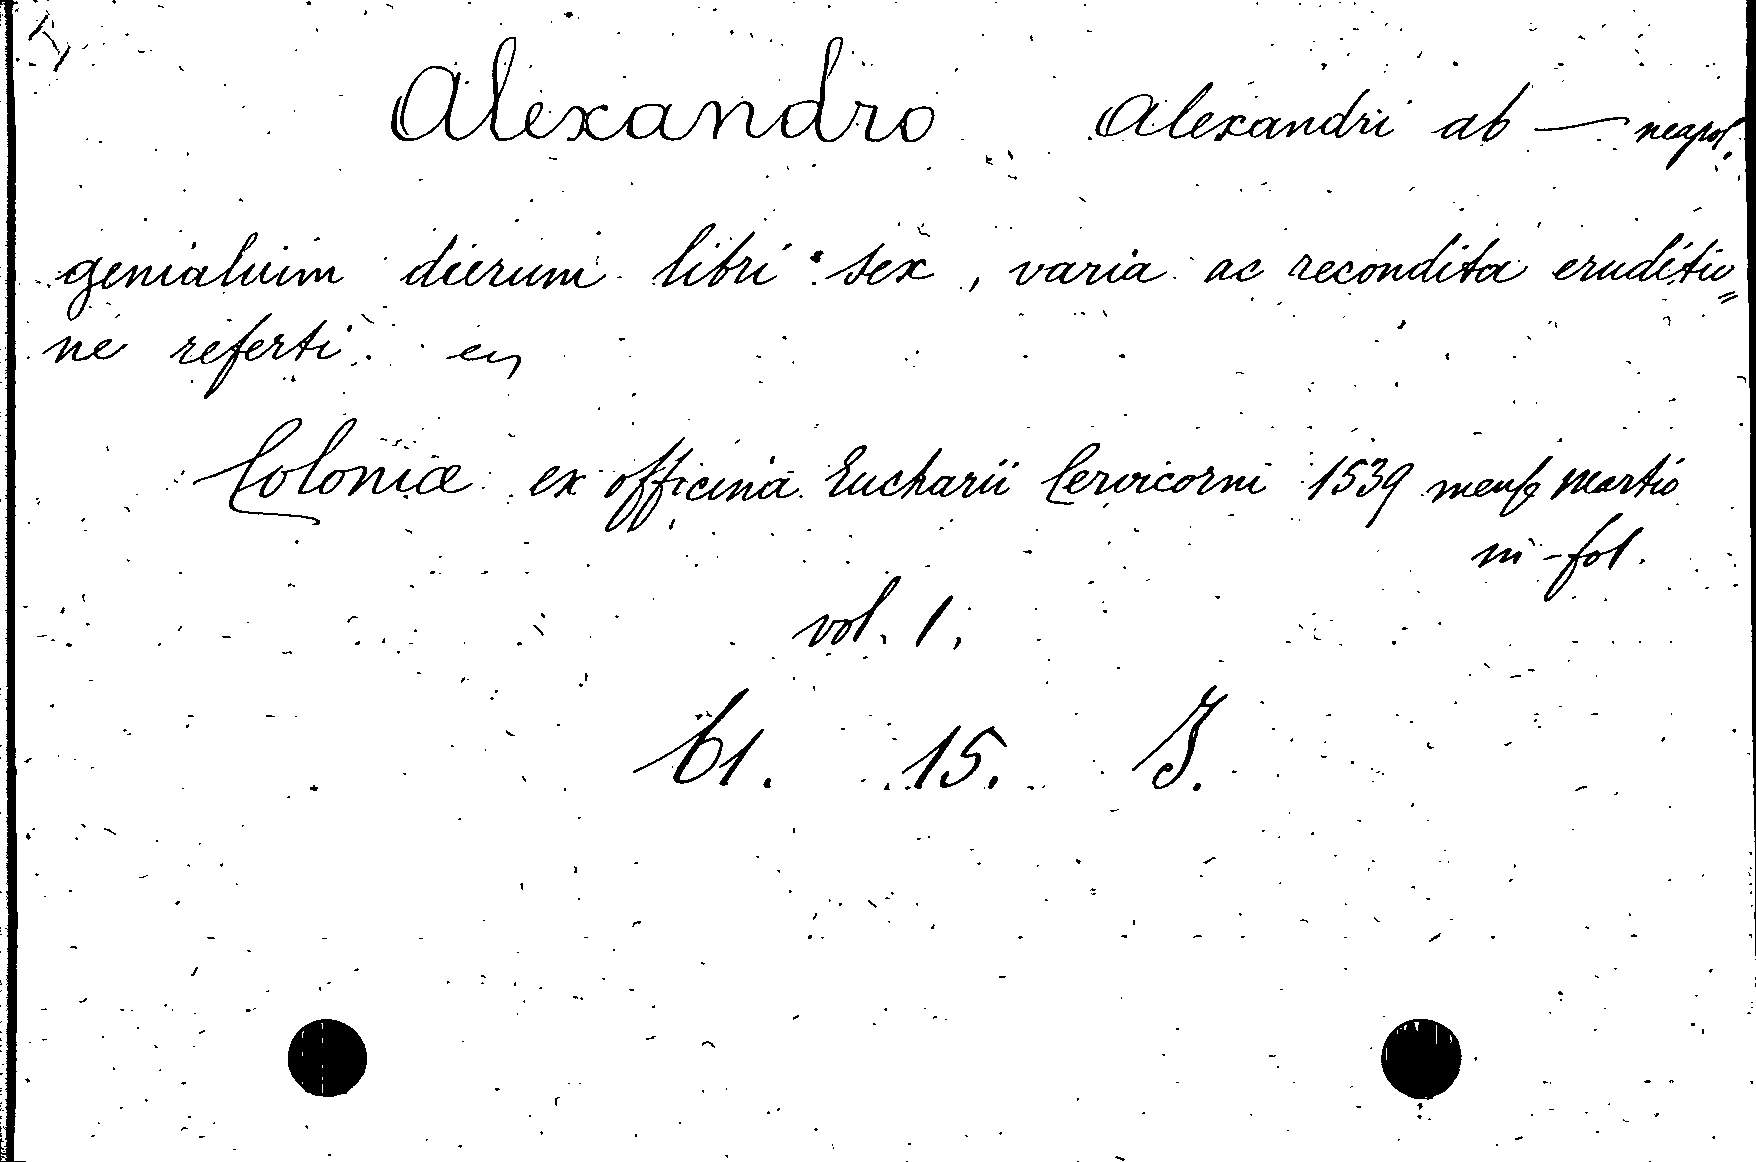 Alexandro Alexandri ab — neapol.
genialuim dierum libri sex, varia ac recondita eruditio=
ne referti.
Coloniæ ex officina Eucharii Cervicorni 1539 mense Martio
in-fol.
vol. 1.
61. 15. J.